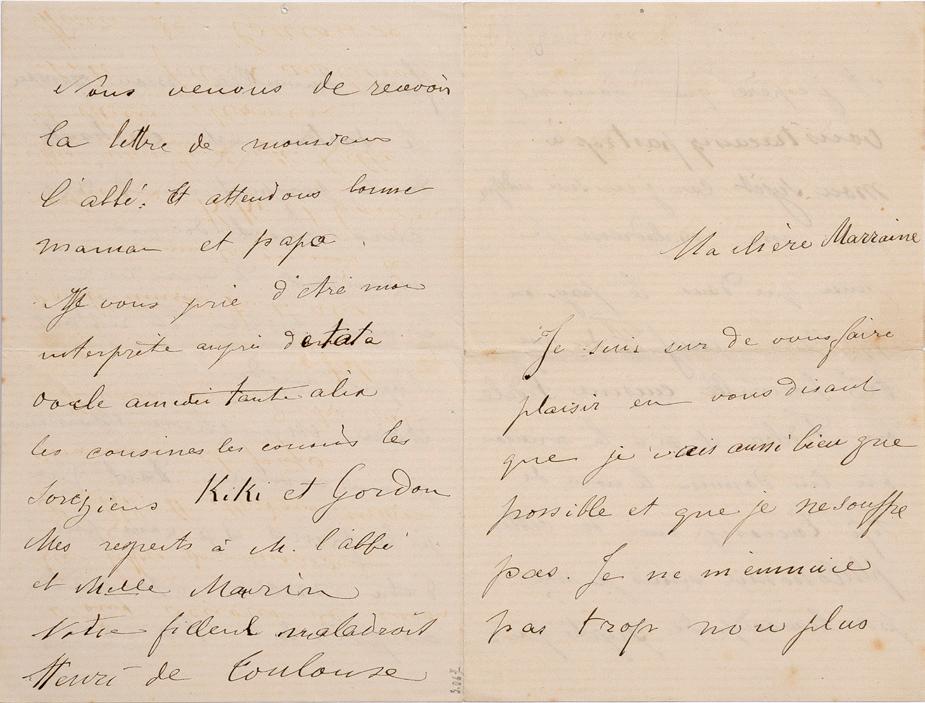 Ma chère Marraine
Je suis sur de vous faire
plaisir en vous disant
que je vais aussi bien que
possible et que je ne souffre
pas. Je ne m'ennuie
pas trop non plus
Nous venons de recevoir
la lettre de monsieur
l'abbé. Et attendons bonne
maman et papa.
Je vous prie d'être mon
interprète auprès de tata
oncle amedée tante alix
les cousines les cousins les
Kiki et Gordon
Mes respects à M. l'abbé
et Melle Marin
Votre filleul maladroit
Henri de Toulouse